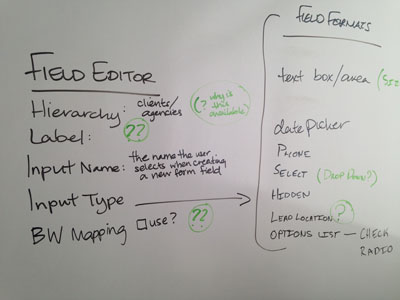 FIELD EDITOR
Hierarchy: clients/
agencies
(? why is
this
available)
Label: ??
Input Name: the name the user
selects when creating
a new form field
Input Type
BW Mapping □ use? ??
FIELD FORMATS
text box/area
datePicker
PHONE
SELECT (DROP DOWN?)
HIDDEN
LEAD LOCATION ?
OPTIONS LIST — CHECK
RADIO